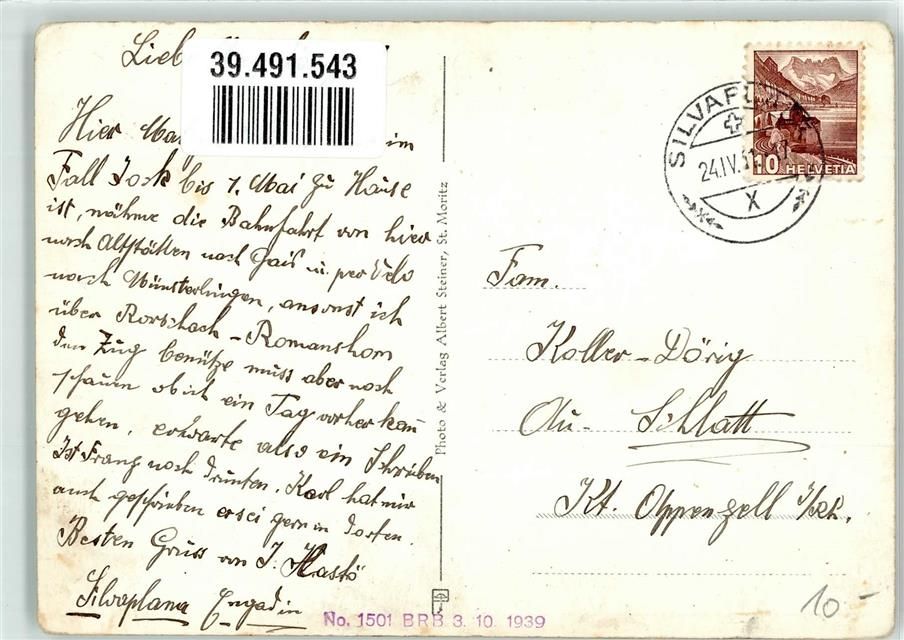 39.491.543
Hier im
Fall Jock bis 1. Mai zu Hause
ist, nähme die Bahnfahrt von hier
nach Altstätten nach Gais u. per Velo
nach Münsterlingen, ansonst ich
über Rorschach - Romanshorn
den Zug benütze muss aber noch
schauen ob ich ein Tag vorher kan̄
gehen, erwarte also ein Schreiben
Ist Franz noch drunten, Karl hat mir
auch geschrieben er sei gern in dorten.
Besten Gruss von J.
Silvaplana Engadin
Photo & Verlag Albert Steiner, St. Moritz
No. 1501 BRB 3. 10. 1939
24.IV.
X
10 HELVETIA
Fam.
Koller-Dörig
Au- Schlatt
Kt. Appenzell I/Rh.
10-